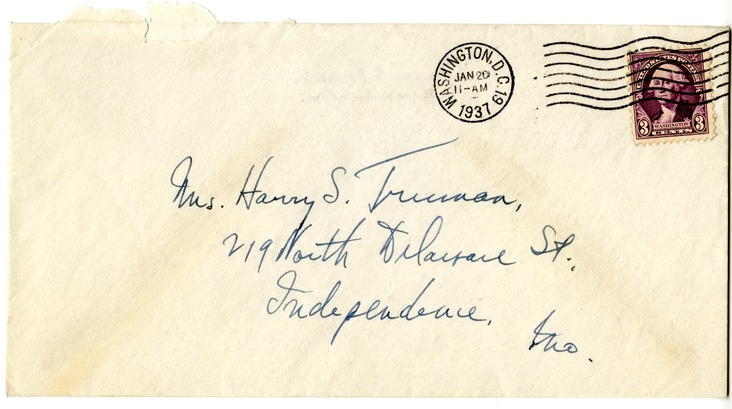 WASHINGTON, D.C. 19
JAN 20
11-AM
1937
3 WASHINGTON 3
Mrs. Harry S. Truman,
219 North Delaware St.,
Independence,
Mo.